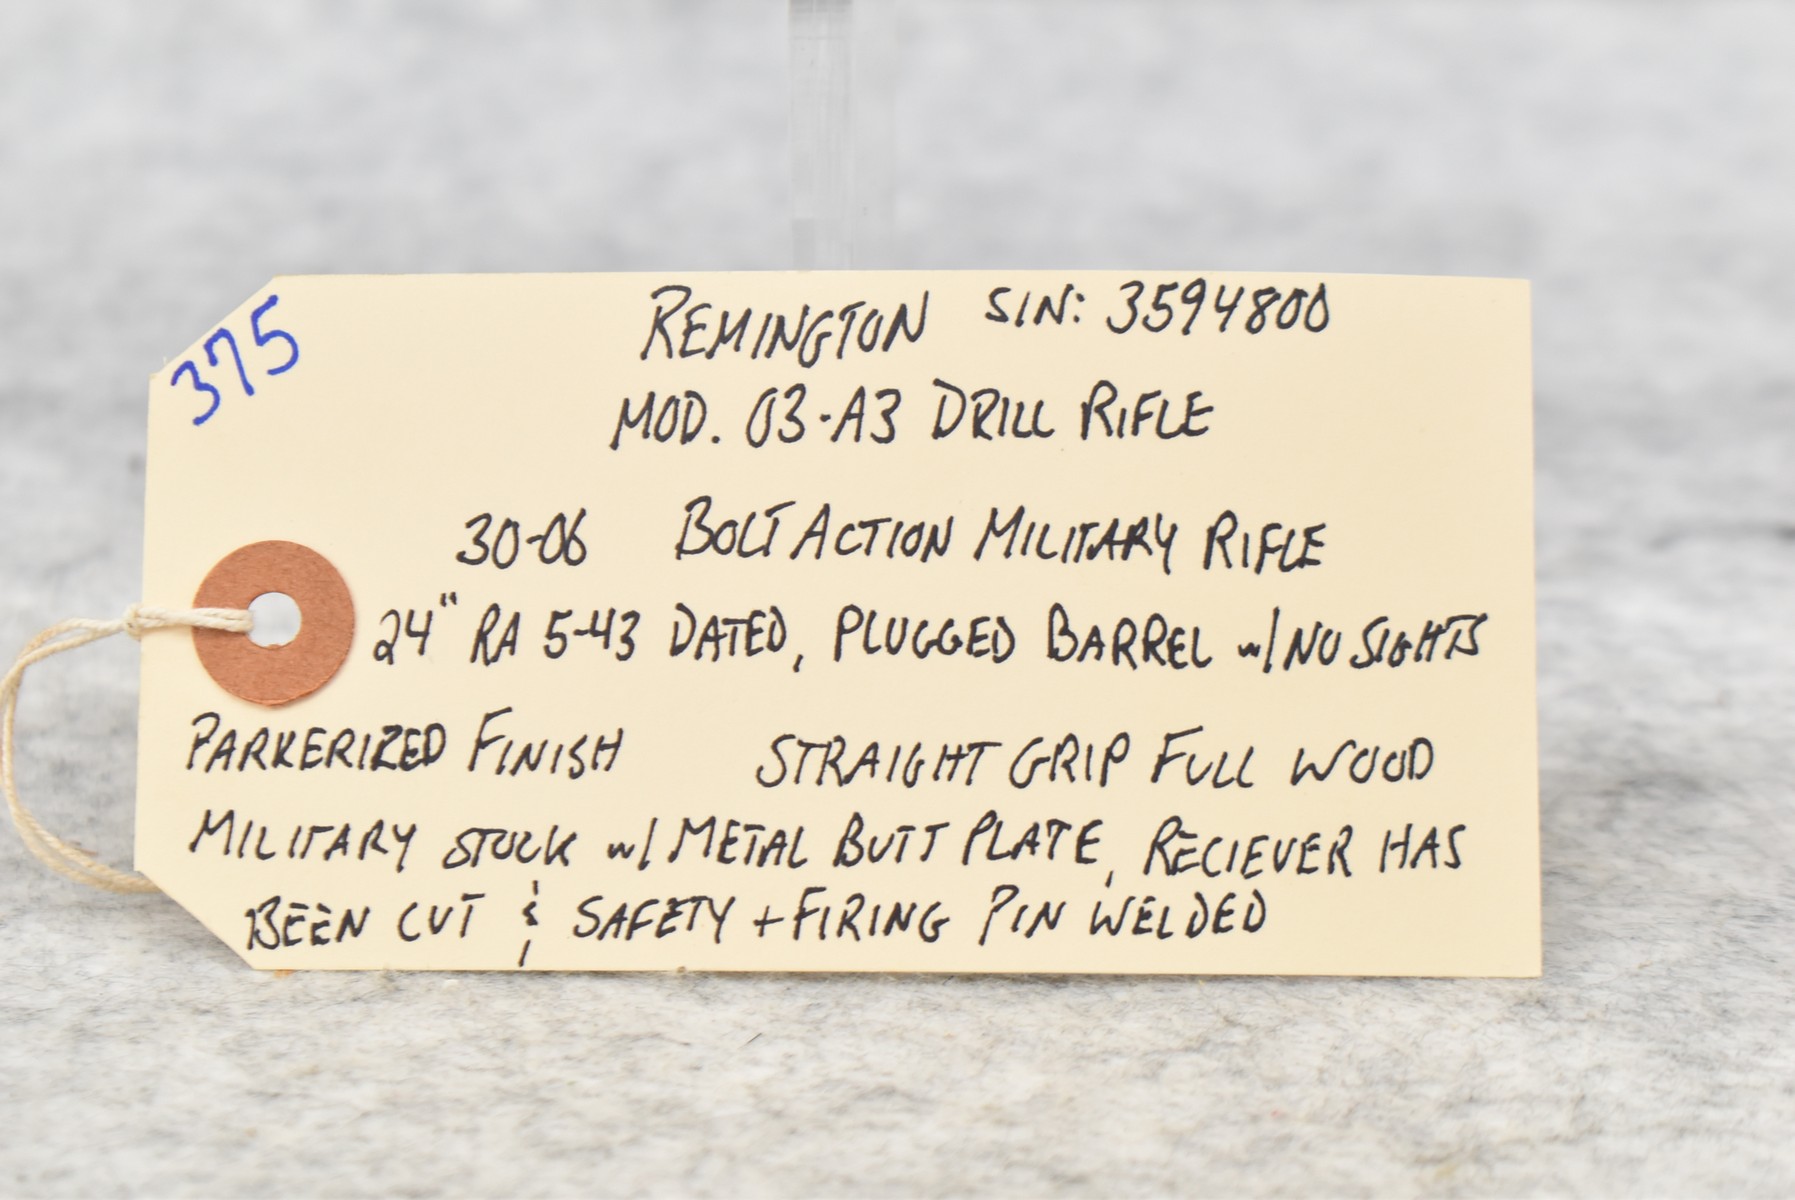 375
REMINGTON S/N: 3594800
MOD. 03-A3 DRILL RIFLE
30-06 BOLT ACTION MILITARY RIFLE
24" RA 5-43 DATED, PLUGGED BARREL w/ NO SIGHTS
PARKERIZED FINISH STRAIGHT GRIP FULL WOOD
MILITARY STOCK w/ METAL BUTT PLATE, RECIEVER HAS
BEEN CUT & SAFETY + FIRING PIN WELDED